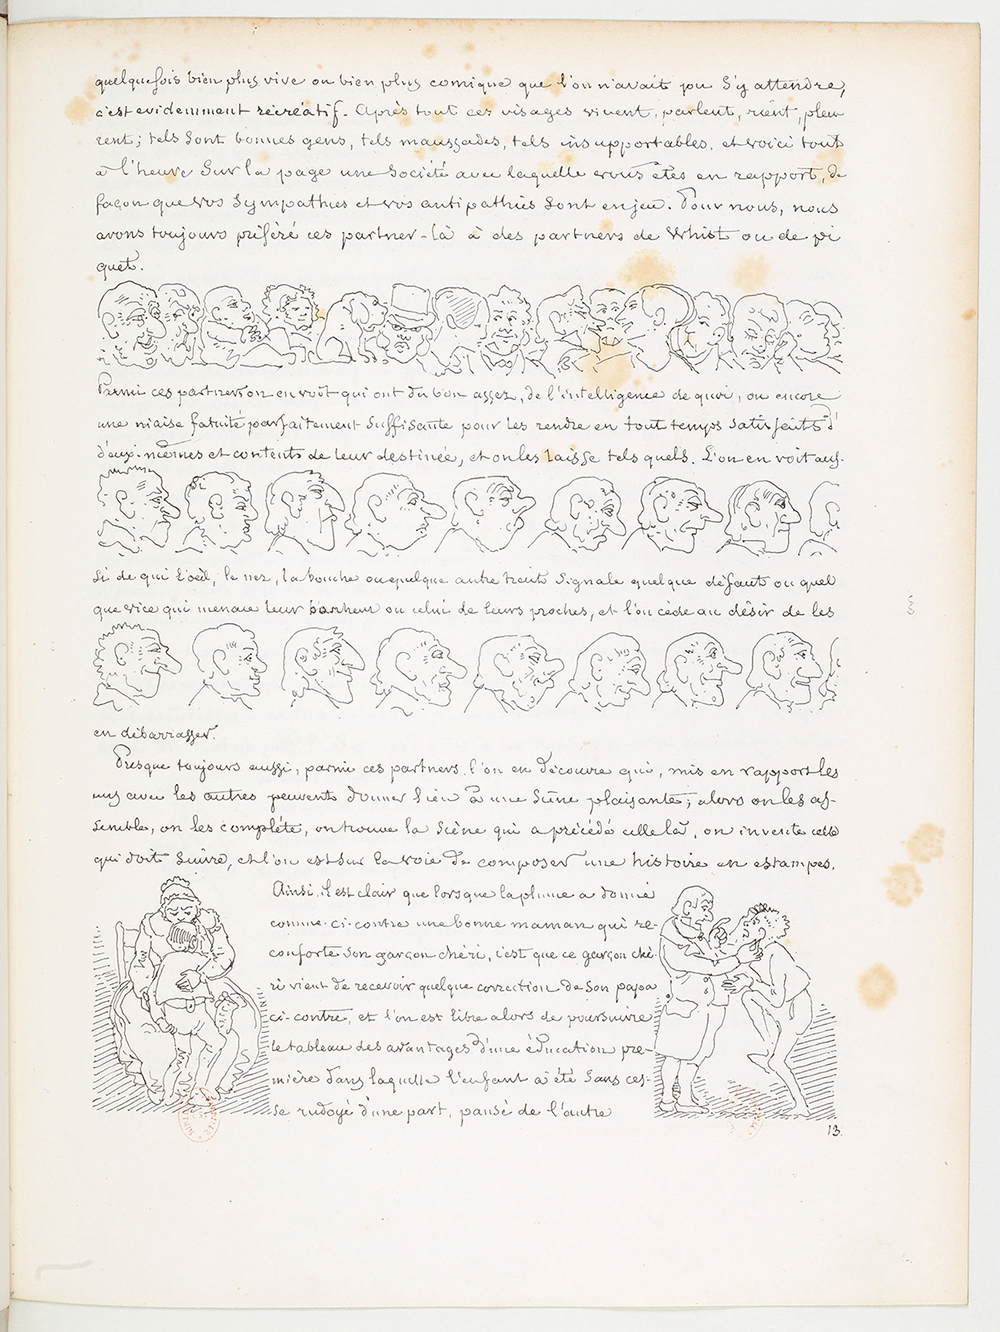 quelquefois bien plus vive ou bien plus comique que l'on n'avait pu s'y attendre,
c'est evidemment récréatif. Après tout ces visages vivent, parlent, rient, pleu-
rent; tels sont bonnes gens, tels maussades, tels insupportables, et voici tout
à l'heure sur la page une société avec laquelle vous êtes en rapport, de
façon que vos sympathies et vos antipathies sont en jeu. Pour nous, nous
avons toujours préféré ces partner-là à des partners de Whist ou de pi
quet.
Parmi ces partners on en voit qui ont du bon assez, de l'intelligence de quoi, ou encore
une niaise fatuité parfaitement suffisante pour les rendre en tout temps satisfaits d'
d'eux-mêmes et contents de leur destinée, et on les laisse tels quels. L'on en voit aus-
si de qui l'oeil, le nez, la bouche ou quelque autre trait signale quelque défaut ou quel
que vice qui menace leur bonheur ou celui de leurs proches, et l'on cède au désir de les
en débarrasser.
Presque toujours aussi, parmi ces partners, l'on en découvre qui, mis en rapport les
uns avec les autres peuvent donner lieu à une scène plaisante; alors on les as-
semble, on les complète, on trouve la scène qui a précédé celle là, on invente celle
qui doit suivre, et l'on est sur la voie de composer une histoire en estampes.
Ainsi, il est clair que lorsque la plume a donné
comme ci-contre une bonne maman qui ré-
conforte son garçon chéri, c'est que ce garçon ché-
ri vient de recevoir quelque correction de son papa
ci-contre, et l'on est libre alors de poursuivre
le tableau des avantages d'une éducation pre-
mière dans laquelle l'enfant a été sans ces-
se rudoyé d'une part, pansé de l'autre
13.